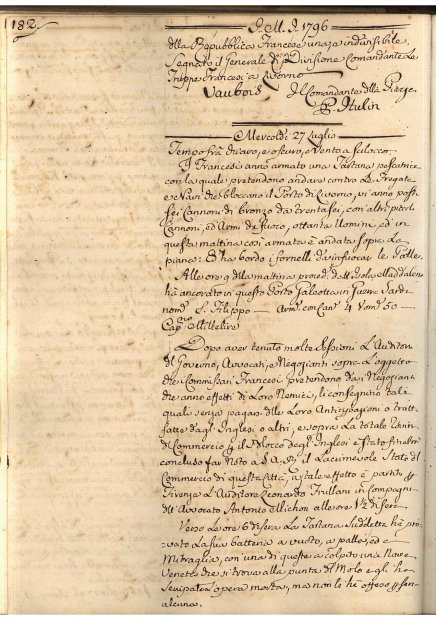 182
1796
della Repubblica Francese una, e indivisibile
Segnato il Generale di Divisione Comandante Le
Truppe Francesi a Livorno
Vaubois Il Comandante della Piazza
Mercoldì 27 Luglio
Tempo frà chiaro, e oscuro, e Vento a scilocco
I Francesi anno armato una Tartana pescatrice
con la quale pretendono andare contro Le Fregate
e Navi che bloccano il Porto di Livorno, vi anno posti
sei Cannoni di bronzo da trentasei, con altri piccoli
Cannoni, ed Armi da fuoco, ottanta Uomini, ed in
questa mattina così armata è andata sopra Le
piana: Ed ha bordo i fornelli da infuocar le Palle
Alle ore 9 della mattina proced. dall'Isola Maddalena
hà ancorato in questo Porto Galeotta in Guerra Sarda
nom. S. Filippo Arm. con Can. 4 Uom. 50
Cap.
Dopo aver tenuto molte Sessioni L'Auditore
del Governo, Avvocati, e Negozianti sopra L'oggetto
che i Commissari Francesi pretendono da i Negozianti
che anno effetti di Loro Nemici, li conseguino tali
quali senza pagare delle Loro Anticipazioni o tratte
fatte dagl'Inglesi o altri, e sopra La totale
di Commercio, il Blocco degl'Inglesi è stato finalm.
concluso far noto a S. A. R. il Lacrimevole Stato del
Commercio di questa Città, a tale effetto è partito per
Firenze L'Auditore Leonardo Frullani in Compagnia
dell'Avvocato Antonio Michon alle ore 1/2 di sera
Verso Le ore 6 di sera La Tartana Suddetta hà pro-
vato La sua batteria a vuoto, a palle, ed a
Mitraglia, con una di queste a colpito una Nave
Veneta che si trova alla punta del Molo e gli ha
l'opera morta, ma non le hà offeso per sen-
alcuna.